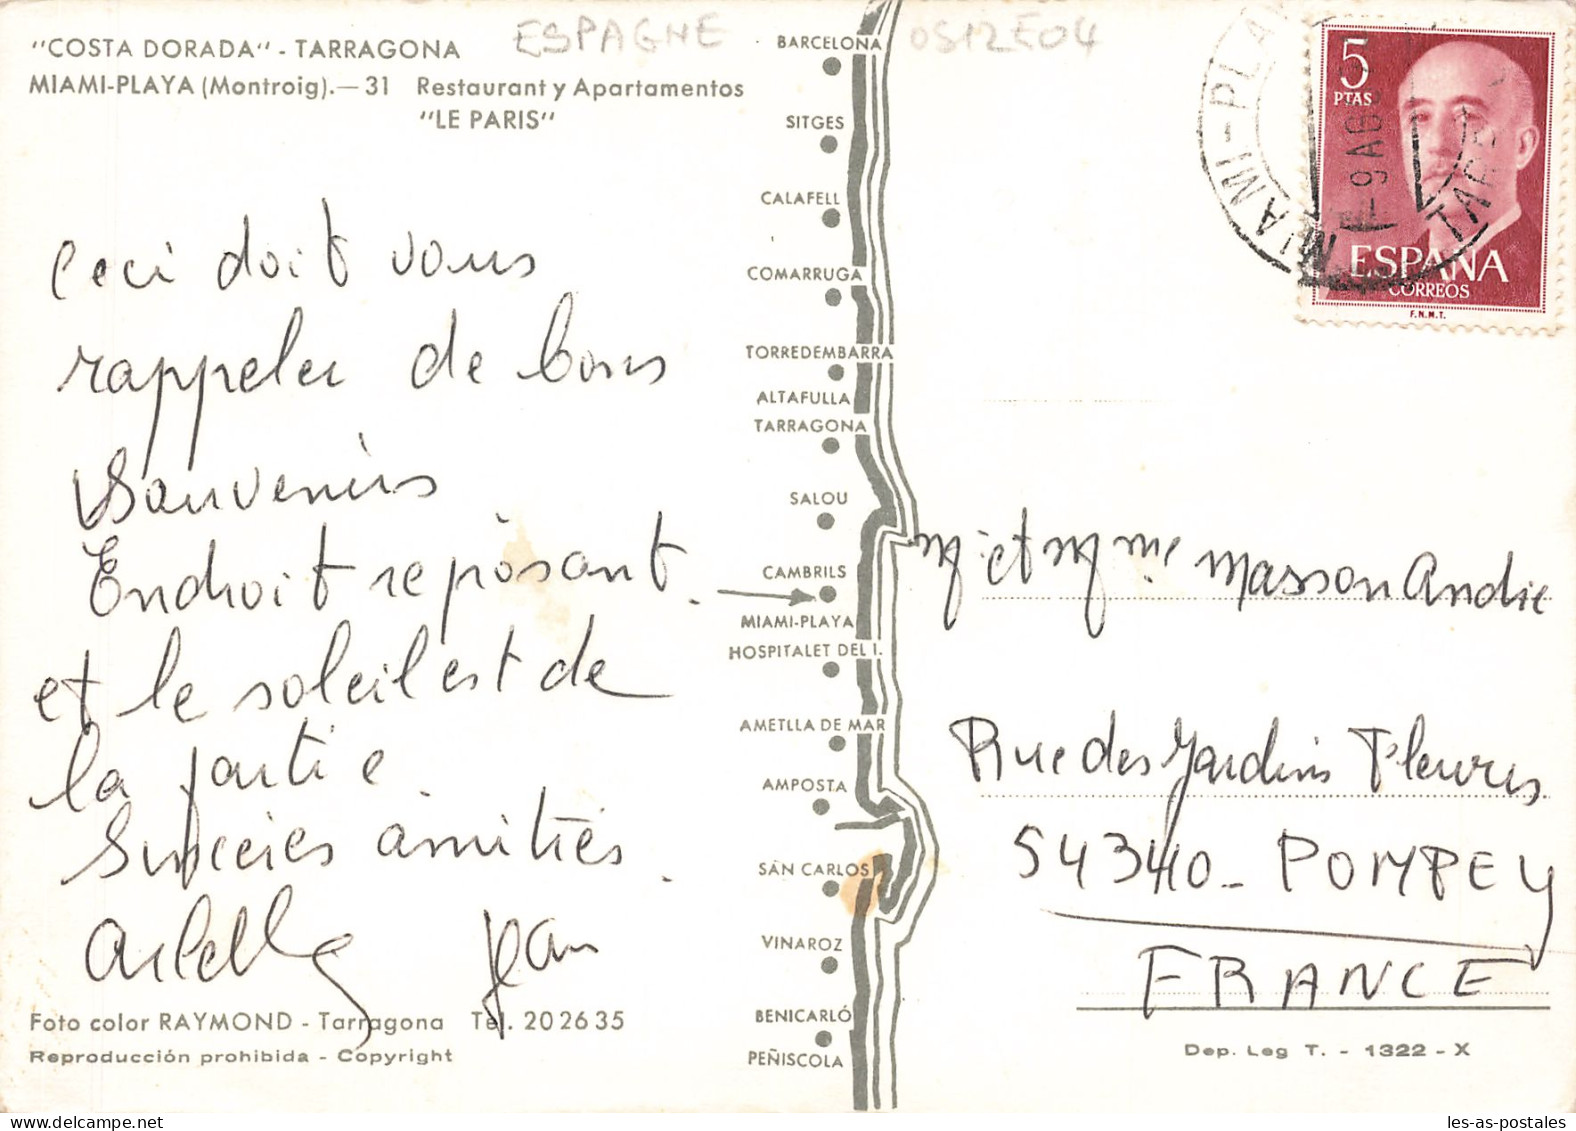 "COSTA DORADA" - TARRAGONA
MIAMI-PLAYA (Montroig).—31 Restaurant y Apartamentos
"LE PARIS"
ESPAGNE
OS12E04
Ceci doit vous
rappeler de bons
souvenirs
Endroit repòsant.
et le soleil est de
la partie
Sincères amitiés.
Arlette Jean
Foto color RAYMOND - Tarragona Tel. 20 26 35
Reproducción prohibida - Copyright
BARCELONA
SITGES
CALAFELL
COMARRUGA
TORREDEMBARRA
ALTAFULLA
TARRAGONA
SALOU
CAMBRILS
MIAMI-PLAYA
HOSPITALET DEL I.
AMETLLA DE MAR
AMPOSTA
SAN CARLOS
VINAROZ
BENICARLÓ
PEÑISCOLA
MIAMI-PLAYA
-9 AGO
TARRAG
5
PTAS
ESPAÑA
CORREOS
F.N.M.T.
Mr et Mme Masson Andre
Rue des Jardins Fleuris
54340 - POMPEY
FRANCE
Dep. Leg T. - 1322 - X
les-as-postales.com